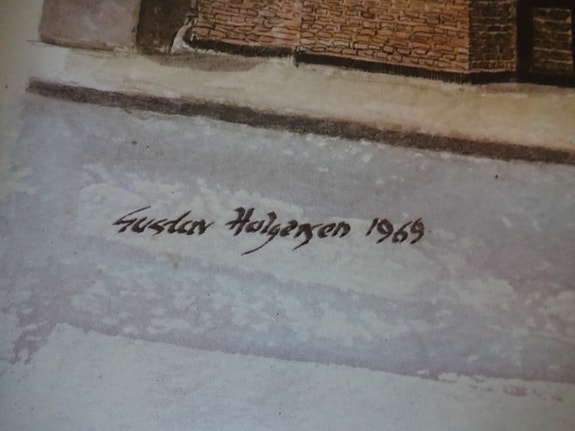 Gustav Holgersen 1969